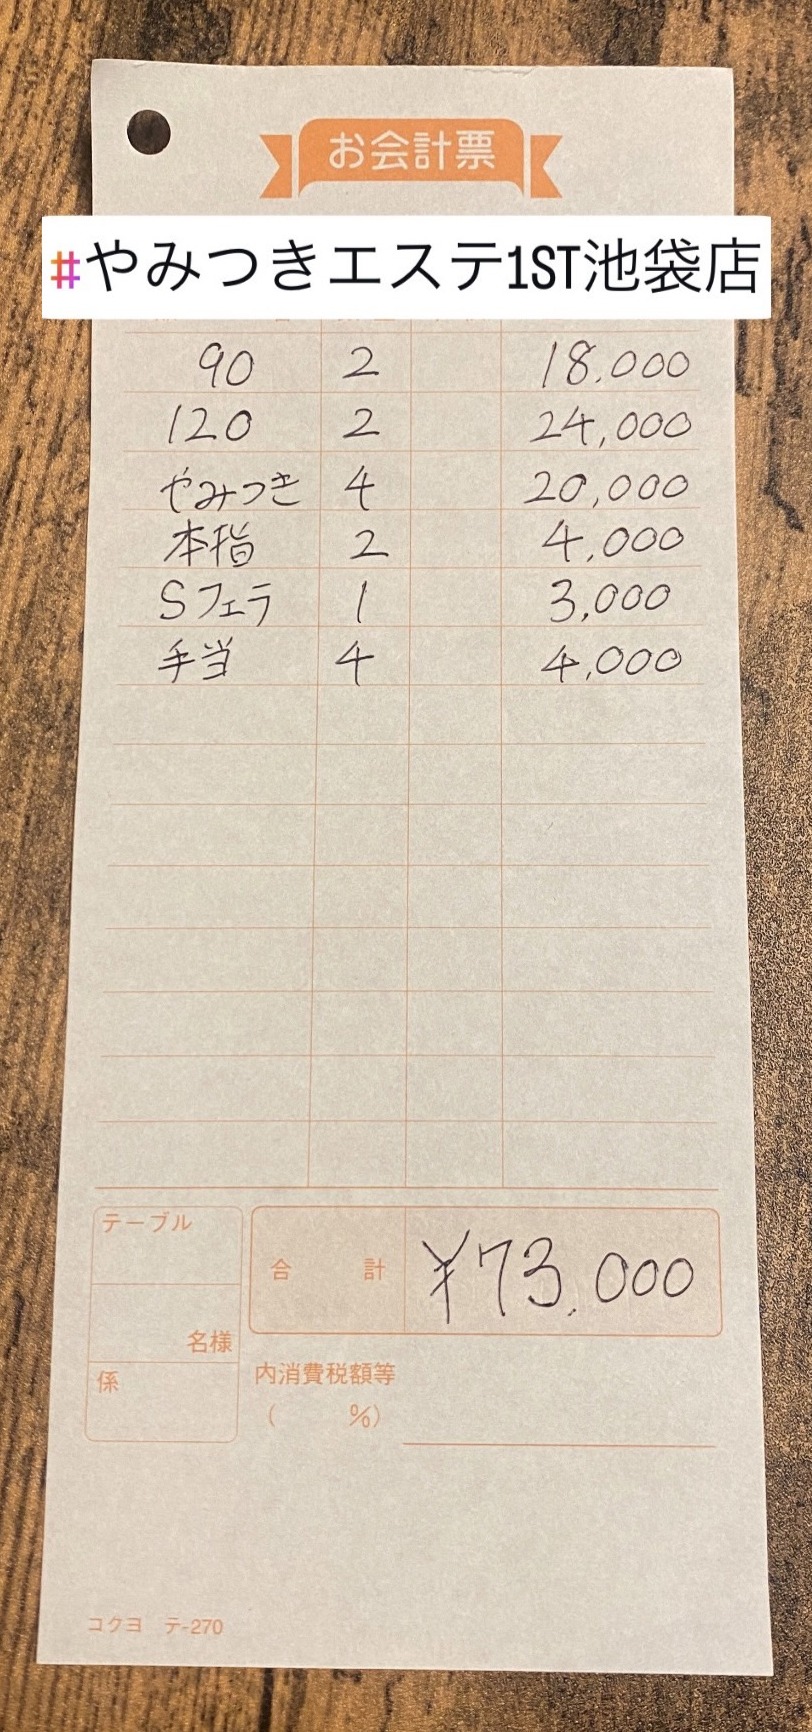 お会計票
#やみつきエステ1ST池袋店
90 2 18.000
120 2 24,000
やみつき 4 20,000
本指 2 4,000
Sフェラ 1 3,000
手当 4 4,000
テーブル
名様
係
合計 ¥73,000
内消費税額等
( %)
コクヨ テ-270